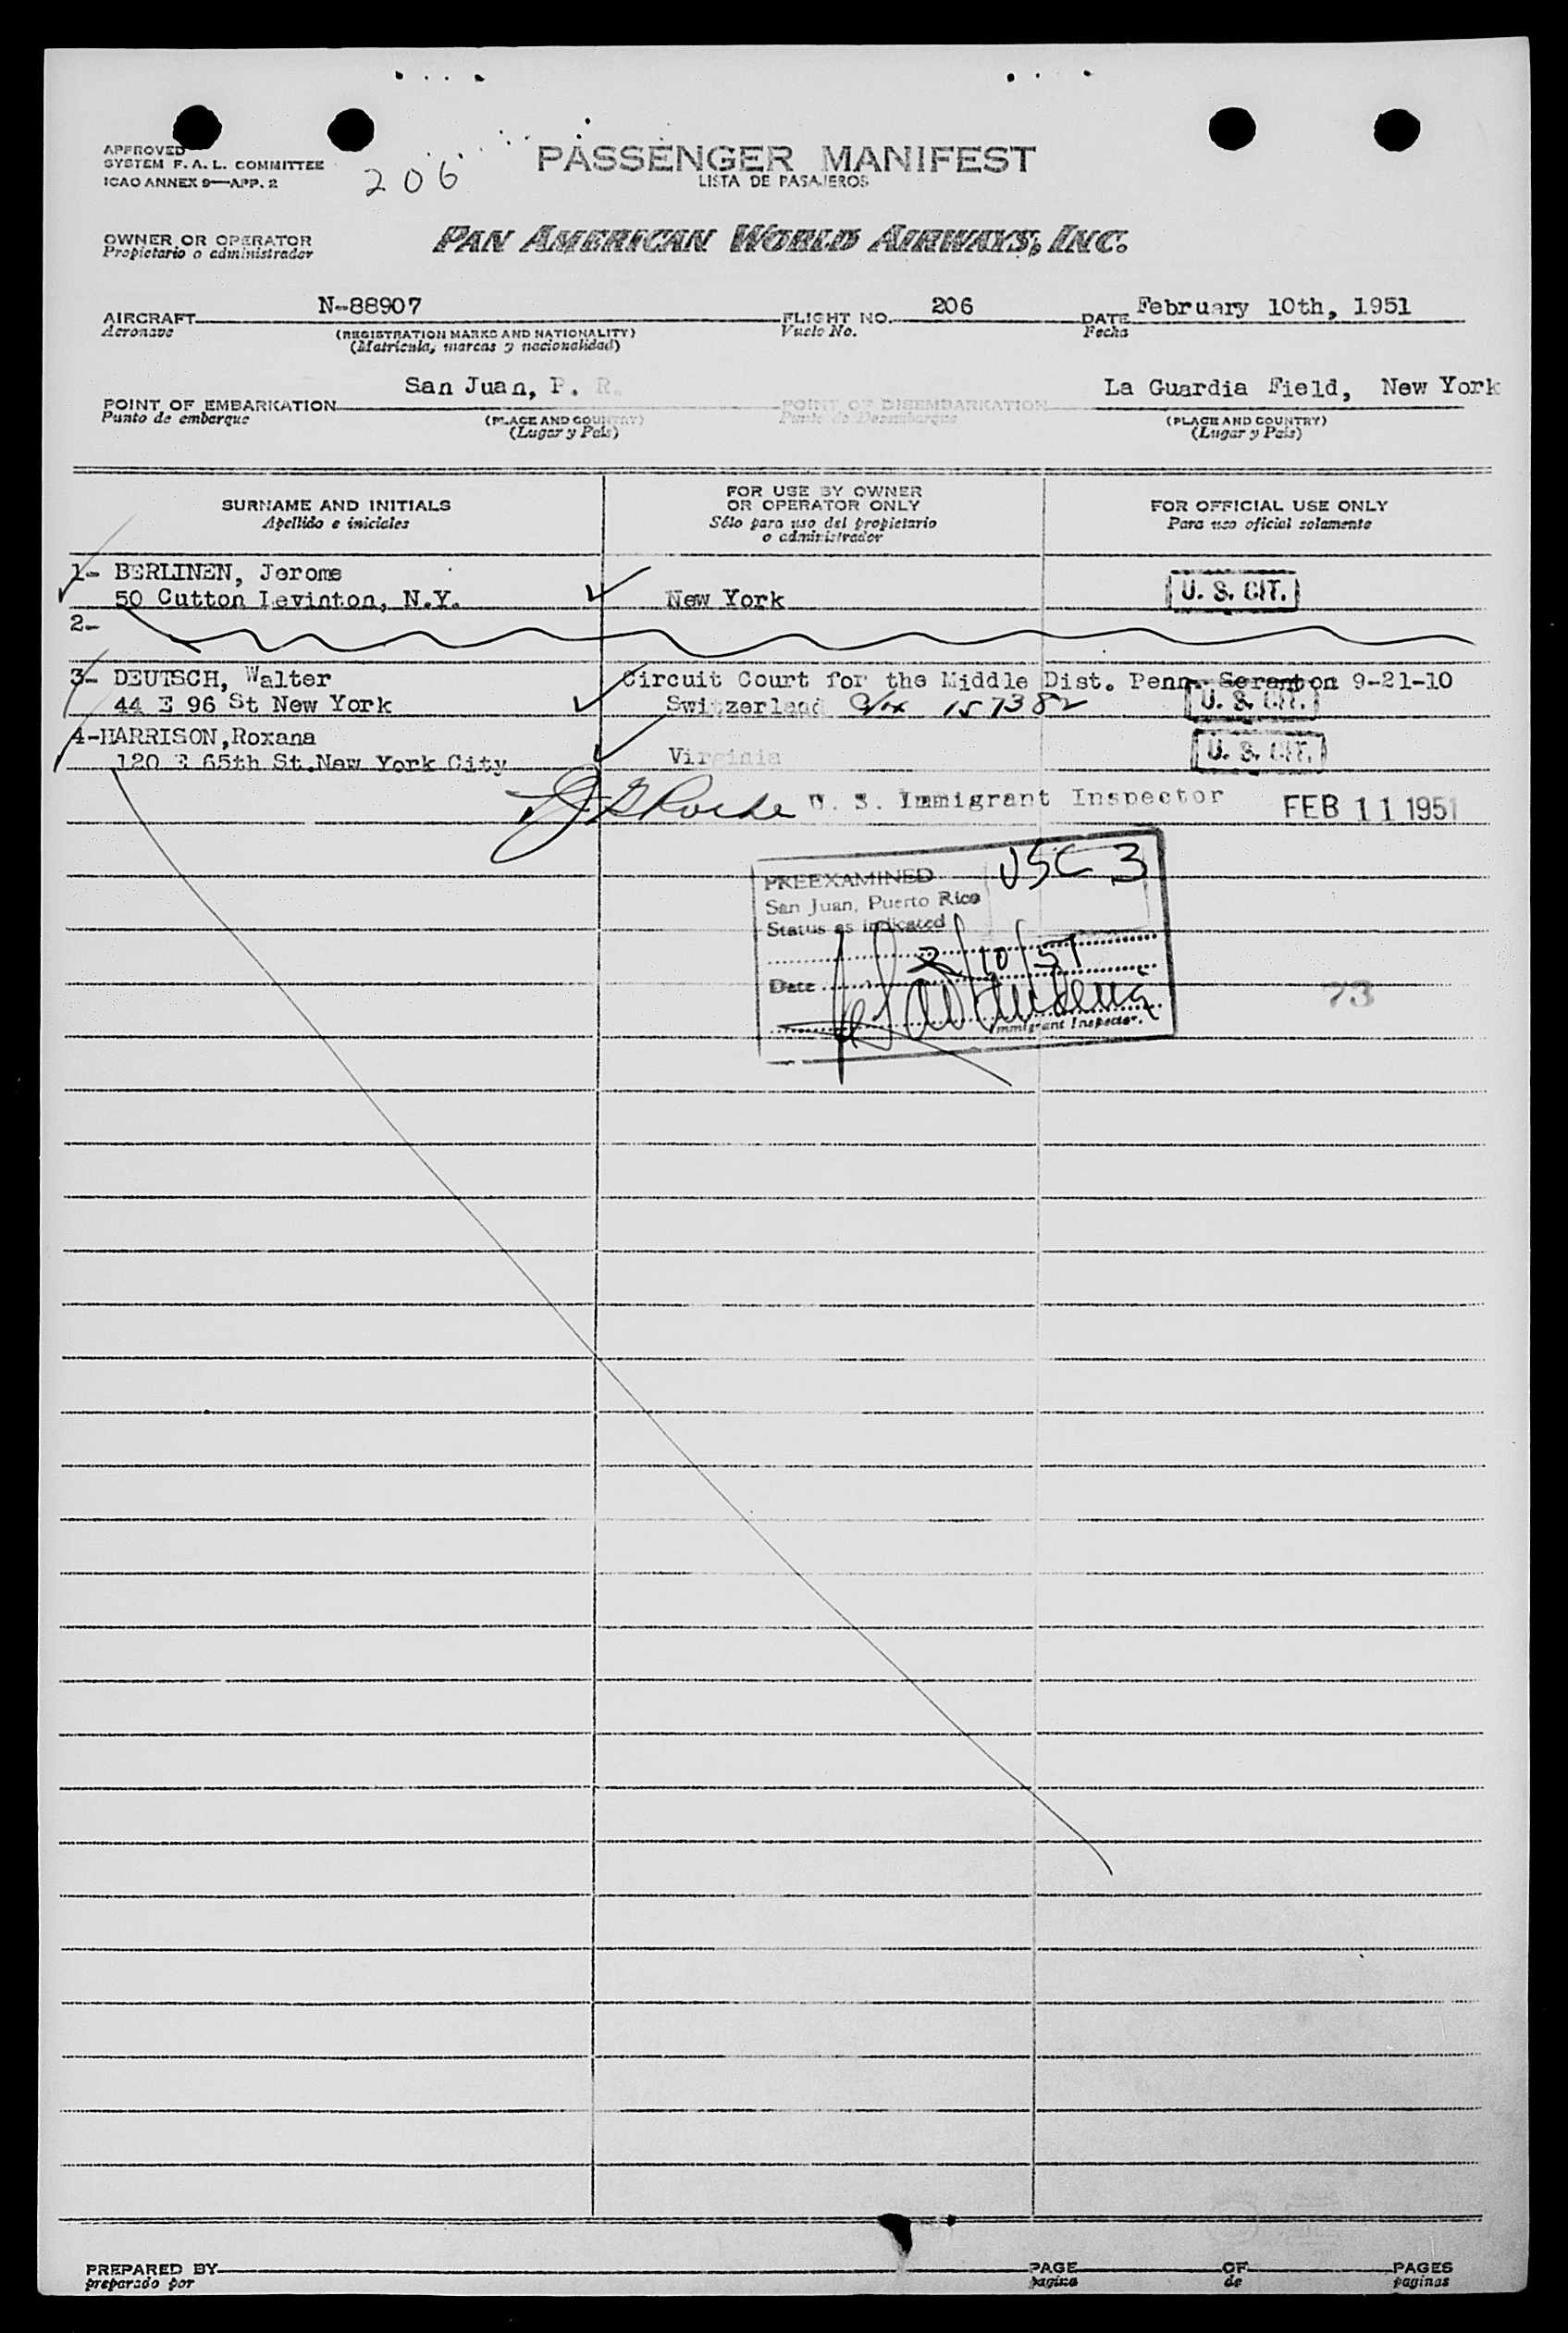 APPROVED
SYSTEM F.A.L. COMMITTEE
ICAO ANNEX 9—APP. 2
206
PASSENGER MANIFEST
LISTA DE PASAJEROS
OWNER OR OPERATOR
Propietario o administrador
PAN AMERICAN WORLD AIRWAYS, INC.
AIRCRAFT N-88907 FLIGHT NO. 206 DATE February 10th, 1951
Aeronave (REGISTRATION MARKS AND NATIONALITY) Vuelo No. Fecha
(Matrícula, marcas y nacionalidad)
POINT OF EMBARKATION San Juan, P. R. POINT OF DISEMBARKATION La Guardia Field, New York
Punto de embarque (PLACE AND COUNTRY) Punto de Desembarque (PLACE AND COUNTRY)
(Lugar y País) (Lugar y País)
SURNAME AND INITIALS
Apellido e iniciales
FOR USE BY OWNER
OR OPERATOR ONLY
Sólo para uso del propietario
o administrador
FOR OFFICIAL USE ONLY
Para uso oficial solamente
1- BERLINEN, Jerome
50 Cutton Levinton, N.Y. New York U. S. CIT.
2-
3- DEUTSCH, Walter Circuit Court for the Middle Dist. Penn. Seranton 9-21-10
44 E 96 St New York Switzerland 157382 U. S. CIT.
4-HARRISON,Roxana U. S. CIT.
120 E 65th St.New York City Virginia
U. S. Immigrant Inspector FEB 11 1951
PREEXAMINED USC 3
San Juan, Puerto Rico
Status as indicated
Date 2/10/51
Immigrant Inspector.
73
PREPARED BY PAGE OF PAGES
preparado por pagina de paginas